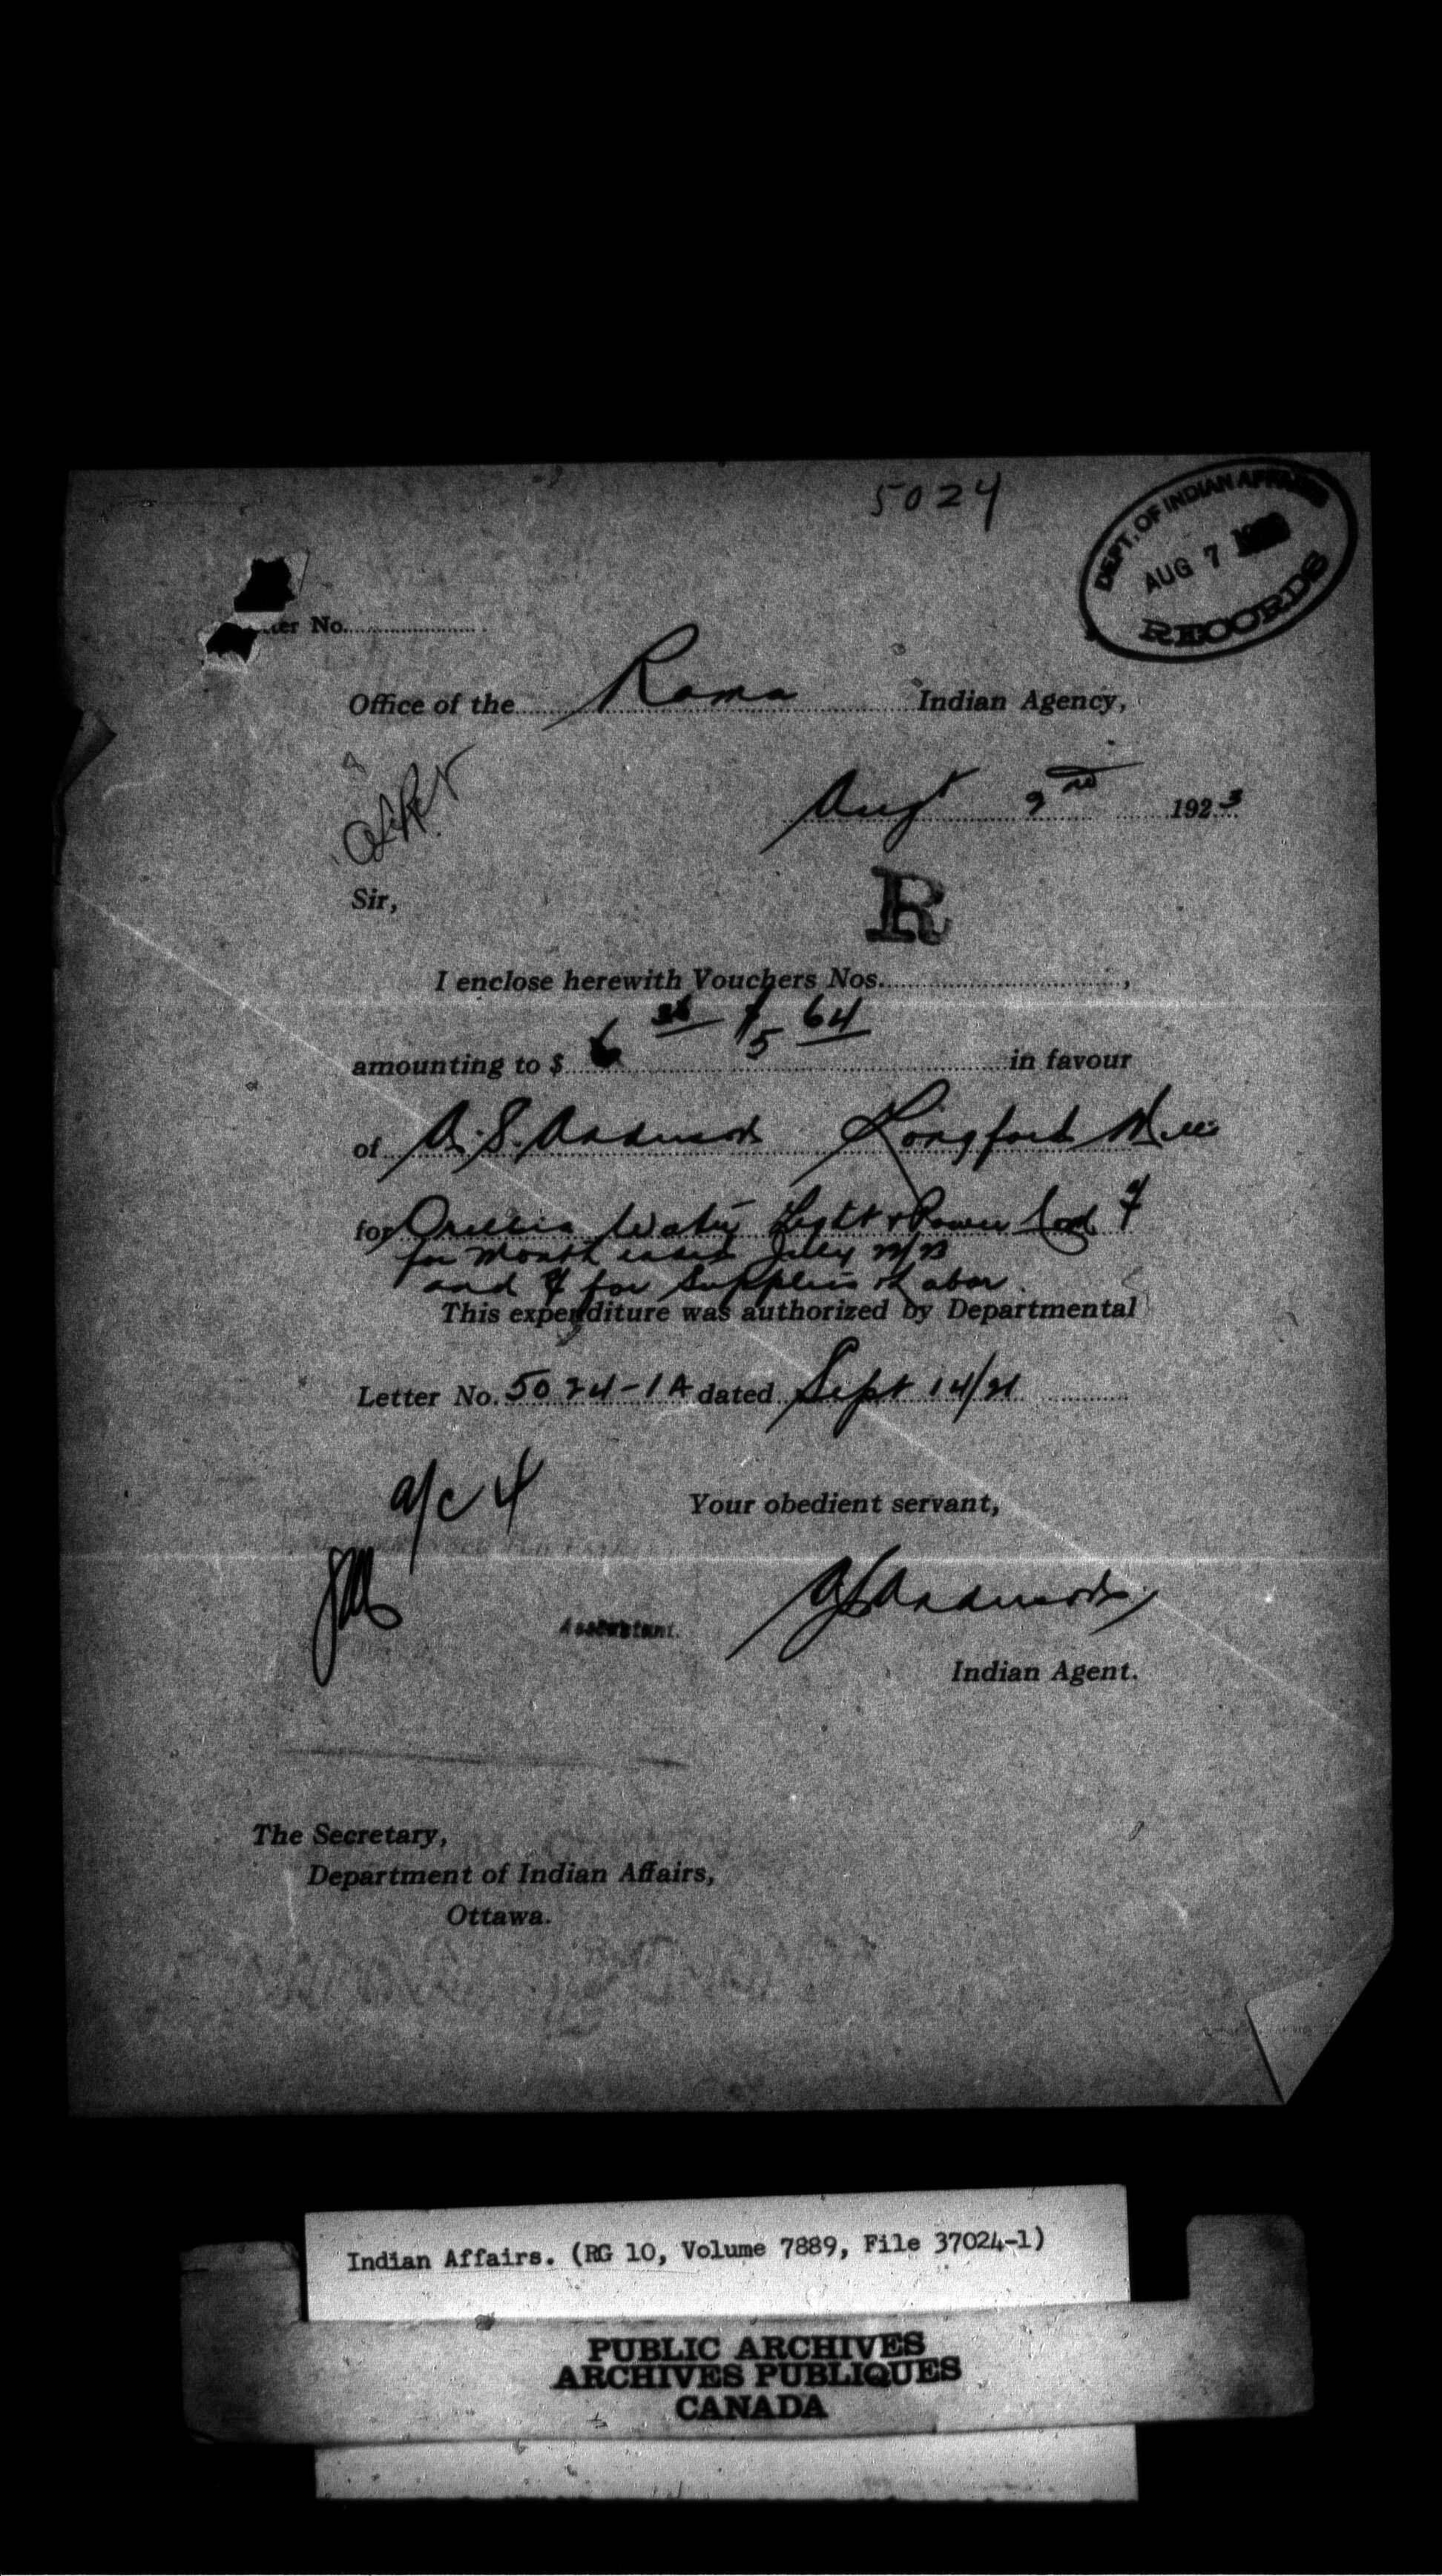 5024
DEPT. OF INDIAN AFFAIRS
AUG 7
RECORDS
No.
Office of the Rama Indian Agency,
Augt 2nd 1923
Sir,
R
I enclose herewith Vouchers Nos. ,
amounting to $ 6 5 64 in favour
of A. S. Anderson Longford Mills
for Orillia Water Light & Power
for month July
and for Supplies & Labor.
This expenditure was authorized by Departmental
Letter No. 5024-1A dated Sept 14/21
a/c 4
Your obedient servant,
A S Anderson
Indian Agent.
The Secretary,
Department of Indian Affairs,
Ottawa.
Indian Affairs. (RG 10, Volume 7889, File 37024-1)
PUBLIC ARCHIVES
ARCHIVES PUBLIQUES
CANADA